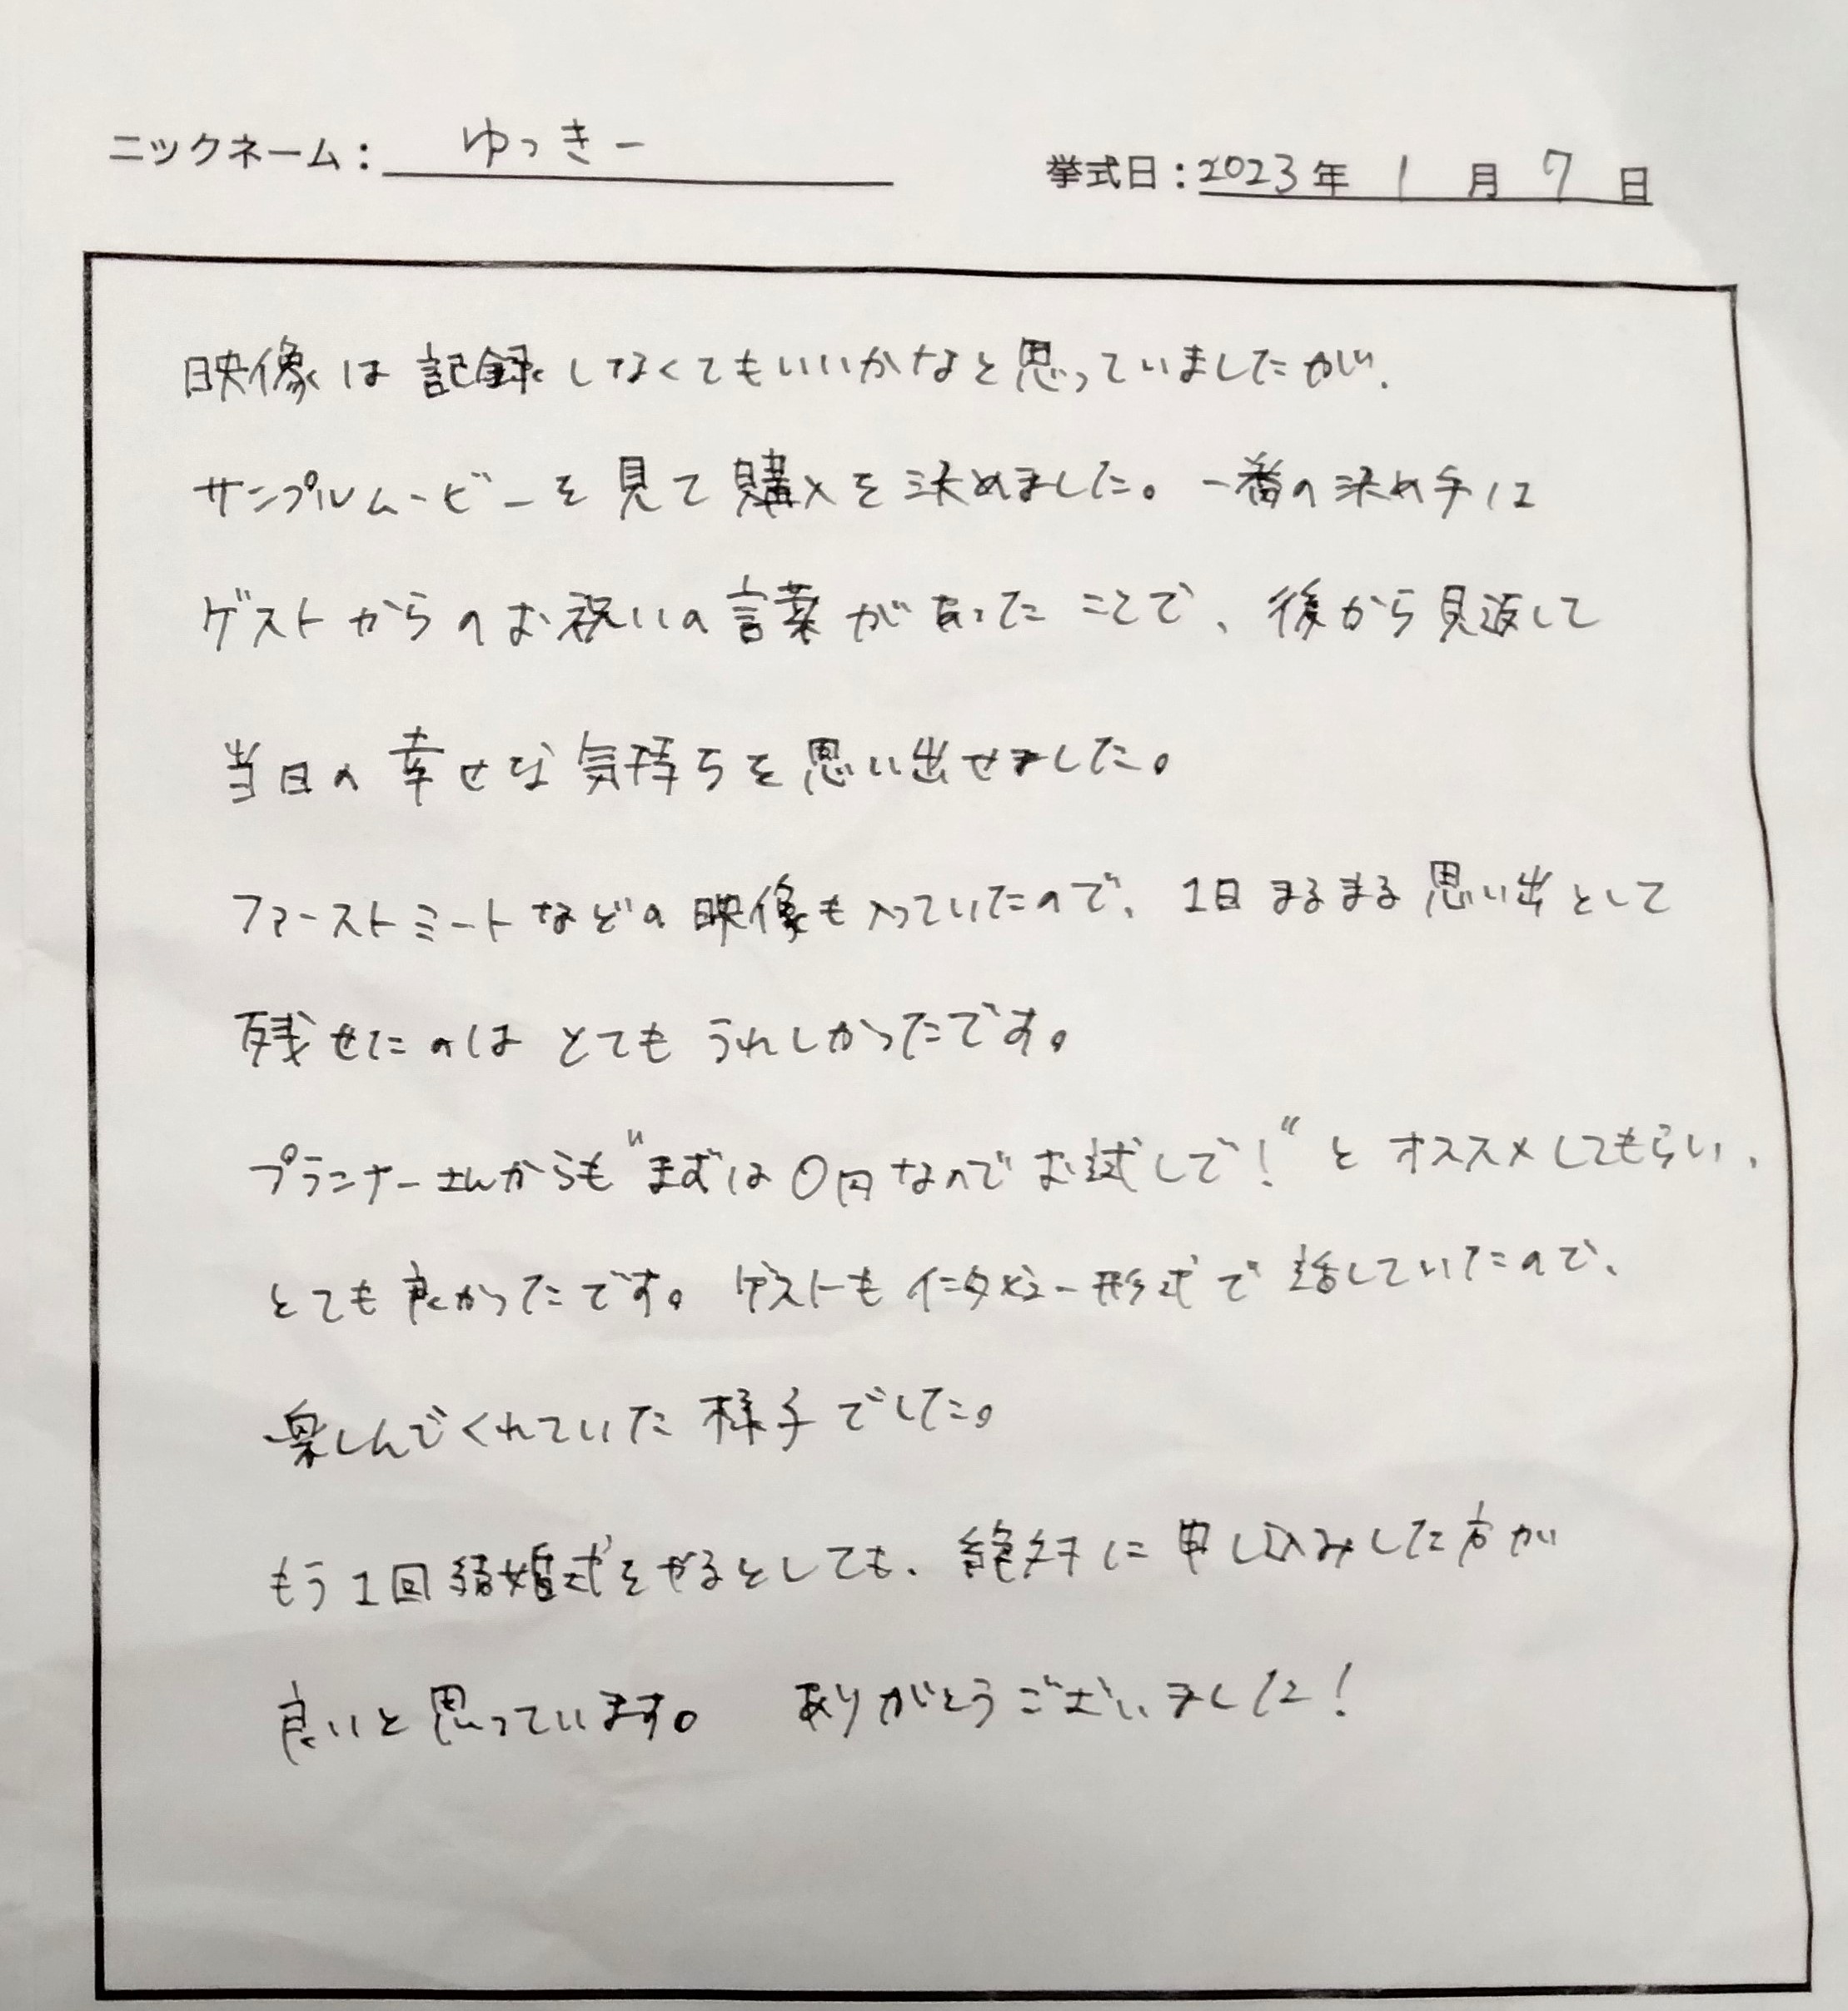 ニックネーム：ゆっきー 挙式日：2023年 1 月 7 日
映像は記録しなくてもいいかなと思っていましたが、
サンプルムービーを見て購入を決めました。一番の決め手は
ゲストからのお祝いの言葉があったことで、後から見返して
当日の幸せな気持ちを思い出せました。
ファーストミートなどの映像も入っていたので、1日まるまる思い出として
残せたのはとてもうれしかったです。
プランナーさんからも"まずは0円なのでお試しで！"とオススメしてもらい、
とても良かったです。ゲストもインタビュー形式で話していたので、
楽しんでくれていた様子でした。
もう1回結婚式をやるとしても、絶対に申し込みした方が
良いと思っています。 ありがとうございました！